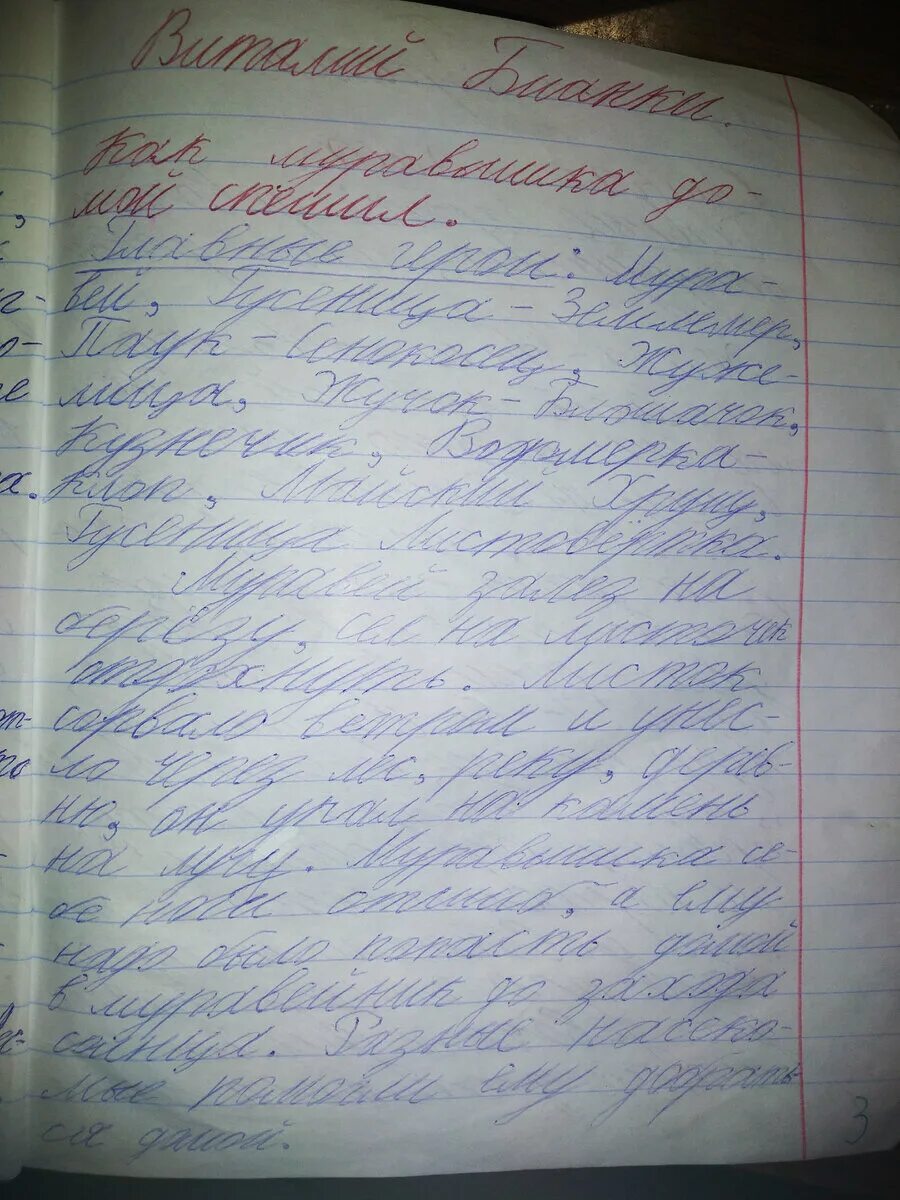 Виталий Бианки.
Как муравьишка до-
мой спешил.
Главные герои: Мура-
вей, Гусеница-Землемер,
Паук-Сенокосец, Жуже-
лица, Жучок-Блошачок,
Кузнечик, Водомерка-
Клоп, Майский Хрущ,
Гусеница Листовёртка.
Муравей залез на
берёзу, сел на листочек
отдохнуть. Листок
сорвало ветром и унес-
ло через лес, реку, дерев-
ню, он упал на камень
на лугу. Муравьишка се-
бе ноги отшиб, а ему
надо было попасть домой
в муравейник до захода
солнца. Разные насеко-
мые помогли ему добрать-
ся домой.
3